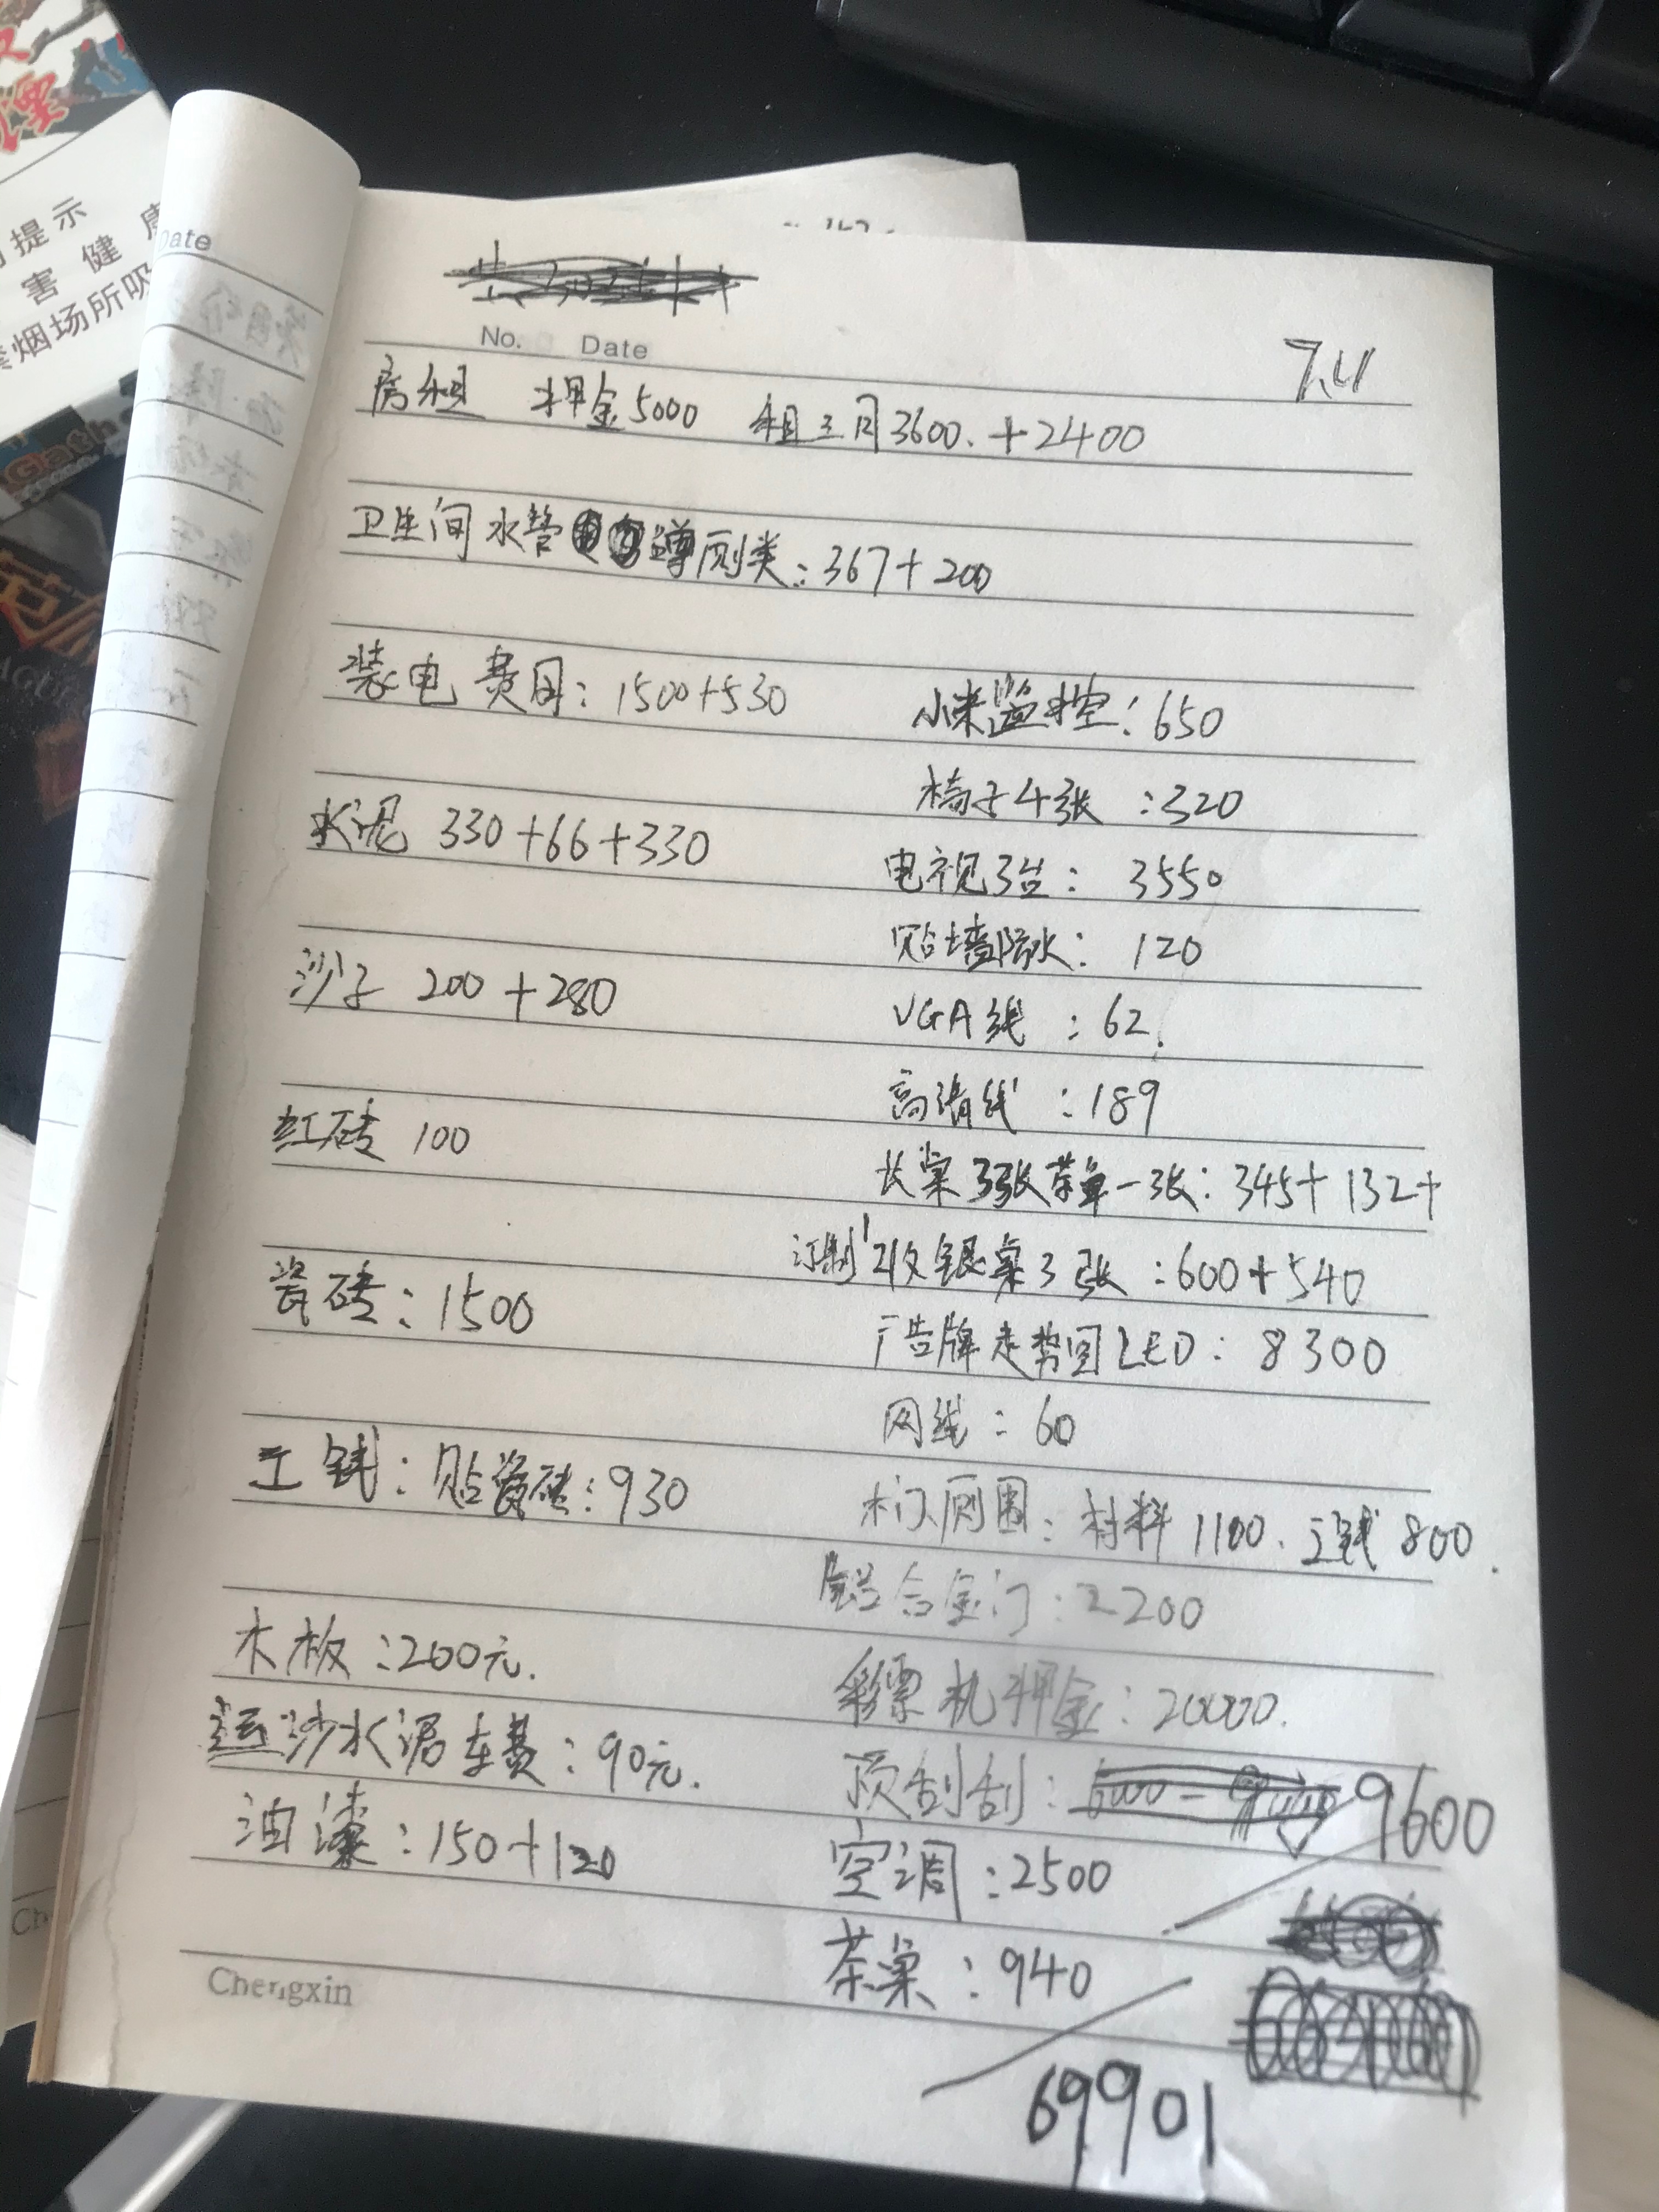 提示
害健康
禁烟场所吸
Date
No. Date
7.11
房租 押金5000 租三月3600.+2400
卫生间水管蹲厕类:367+200
装电费用:1500+530
小米监控:650
椅子4张:320
水泥 330+66+330
电视3台:3550
贴墙防水:120
沙子 200+280
VGA线:62.
高清线:189
红砖 100
长桌3张茶单一张:345+132+
订制收银桌3张:600+540
瓷砖:1500
广告牌走势图LED:8300
网线:60
工钱:贴瓷砖:930
木门厕围:材料1100.工钱800.
铝合金门:2200
木板:200元.
彩票机押金:20000.
运沙水泥车费:90元.
预刮刮:9600
油漆:150+120
空调:2500
茶桌:940
Chengxin
69901